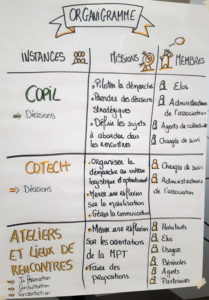 ORGANIGRAMME
INSTANCES
MISSIONS
MEMBRES
COPIL
→ Décisions
• Piloter la démarche
• Prendre des décisions
stratégiques
• Définir les sujets
à aborder dans
les rencontres
Elus
Administrateurs
de l'association
Agents de collectivité
Chargée de suivi
COTECH
→ Décisions
• Organiser la
démarche au niveau
logistique et opérationnel
• Mener une réflexion
sur la mobilisation
• Gérer la communication
Chargée de suivi
Administrateurs
de l'association
ATELIERS
ET LIEUX DE
RENCONTRES
→ Information
→ Consultation
→ Concertation
• Mener une réflexion
sur les orientations
de la MPT
• Faire des
propositions
Habitants
Elus
Usagers
Bénévoles
Agents
Partenaires